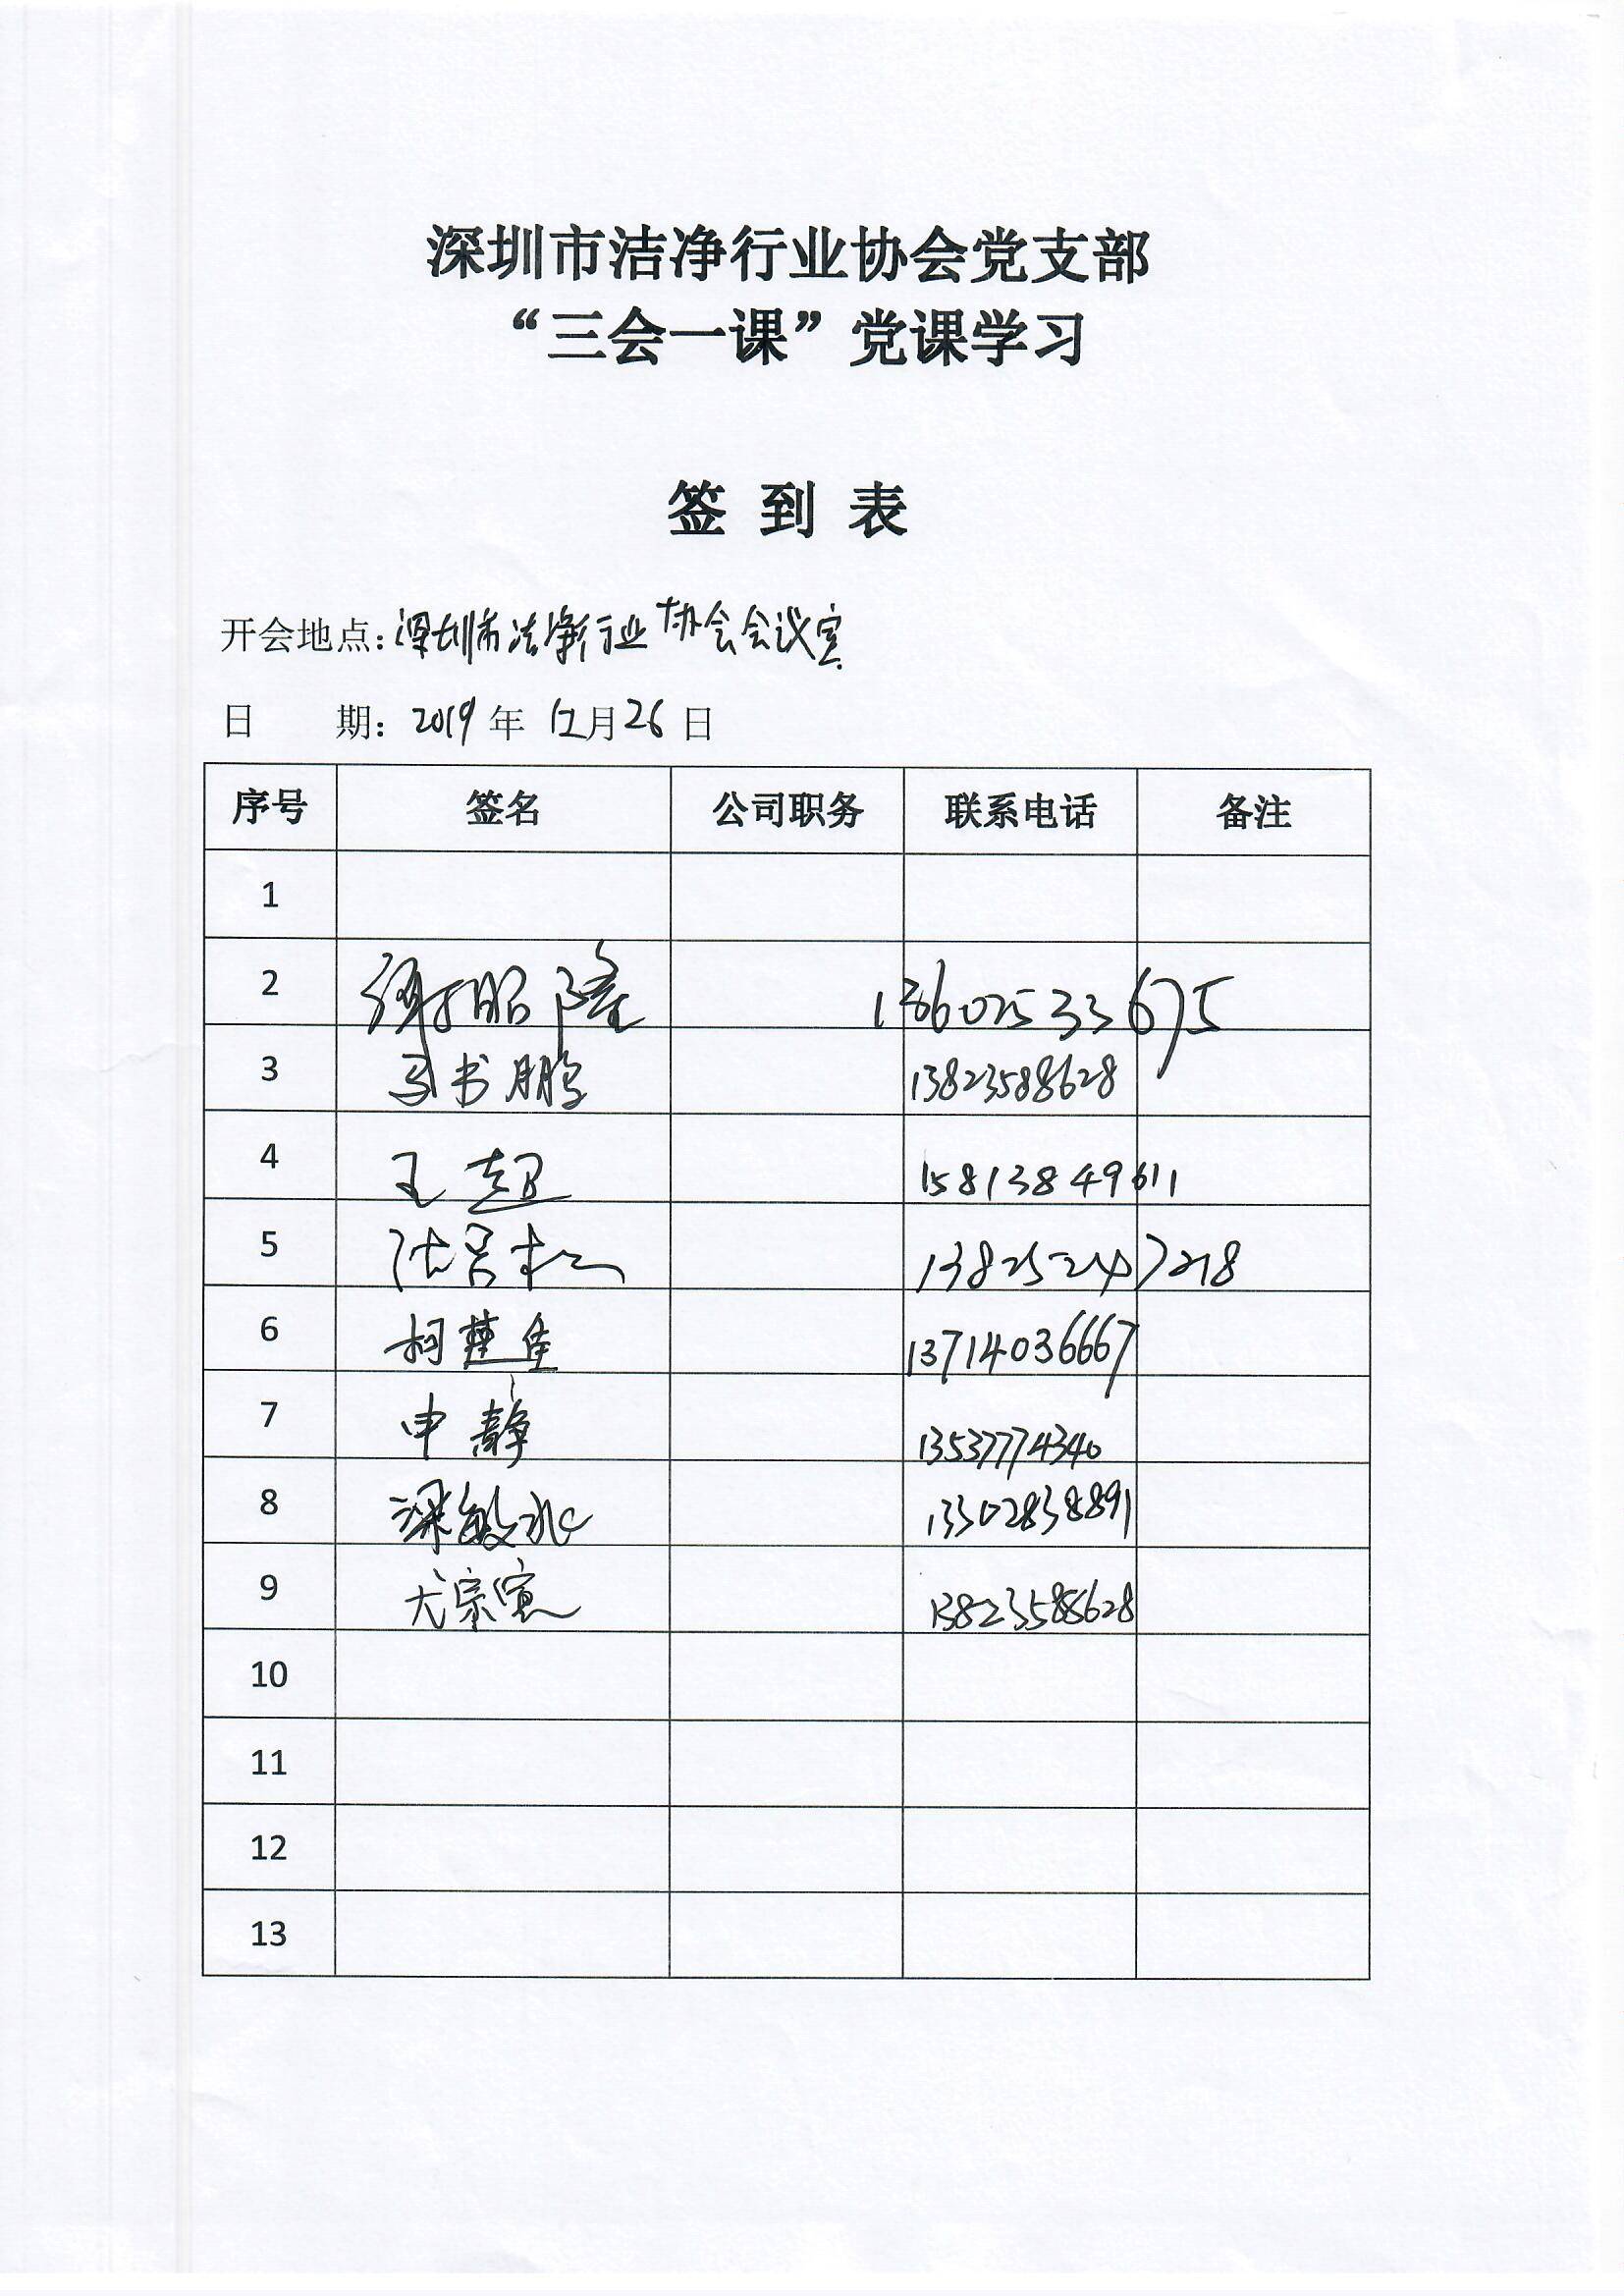 深圳市洁净行业协会党支部
“三会一课”党课学习
签 到 表
开会地点：深圳市洁净行业协会会议室
日 期：2019 年 12月 26 日
序号 签名 公司职务 联系电话 备注
1
2 谢昭隆 13602533675
3 马书鹏 13823588628
4 王超 15813849611
5 13825247218
6 柯楚佳 13714036667
7 申静 13537774340
8 梁敏冰 13302838891
9 尤宗寅 13823588628
10
11
12
13